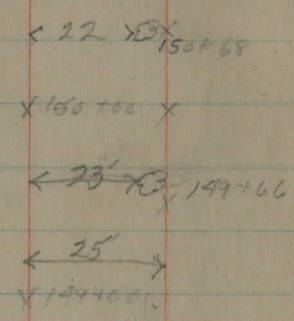 22
150+68
150+00
23'
149+66
25'
149+00